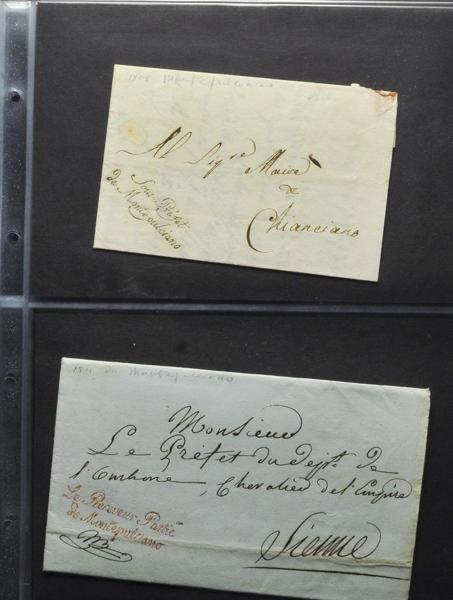 1808 Montepulciano
Al Sigre Maire
de
Chianciano
Sous-Préfet
de Montepulciano
1811 da Montepulciano
Monsieur
Le Préfet du Dépt. de
l'Ombrone, Chevalier de l'Empire
Sienne
Le Receveur Partic
de Montepulciano